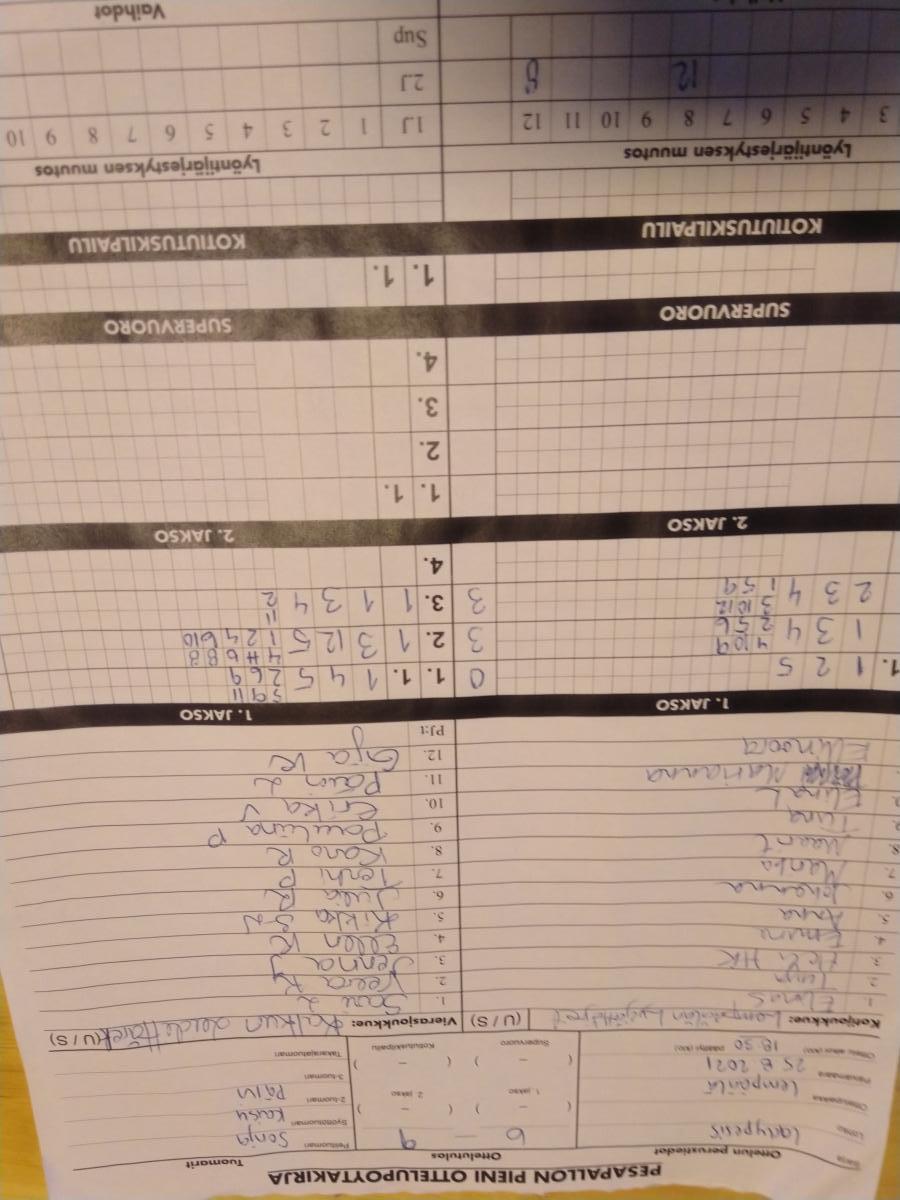 PESÄPALLON PIENI OTTELUPÖYTÄKIRJA
Ottelun perustiedot Ottelutulos Tuomarit
Sarja Ladypesis
Lohko
Ottelupaikka Lempäälä
Päivämäärä 25 8 2021
Ottelu alkaa (klo) 18.30 päättyi (klo)
6 – 9
1. jakso 2. jakso
( – ) ( – )
Supervuoro Kotiutuskilpailu
( – ) ( – )
Pelituomari Sonja
Syöttötuomari Kaisu
2-tuomari Päivi
3-tuomari
Takarajatuomari
Kotijoukkue: Lempäälän (U / S) Vierasjoukkue: (U / S)
1. Elina S 1. Sari L
2. Tanja 2. Veera K
3. HK 3. Jenna J
4. Emmi 4. Ellen K
5. Anna 5. Rikka
6. Johanna 6. Julia R
7. Marika 7. Terhi P
8. Maarit 8. Kano R
9. Tiina 9. Pauliina P
Elina L 10. Erika V
Marianna 11. Päivi L
Ellinoora 12. Enja K
PJ:t
1. JAKSO 1. JAKSO
1. 1 2 5 0 1. 1. 1 4 5 2 6 9
5 9 11
1 3 4 2 5 6 3 2. 1 3 12 5 1 2 4 6 10
4 10 9
2 3 4 1 5 9 3 3. 1 1 3 4 2
3 10 12 11
4.
2. JAKSO 2. JAKSO
1. 1.
2.
3.
4.
SUPERVUORO SUPERVUORO
1. 1.
KOTIUTUSKILPAILU KOTIUTUSKILPAILU
Lyöntijärjestyksen muutos Lyöntijärjestyksen muutos
3 4 5 6 7 8 9 10 11 12 1J 1 2 3 4 5 6 7 8 9 10
12 8 2J
Sup
Vaihdot